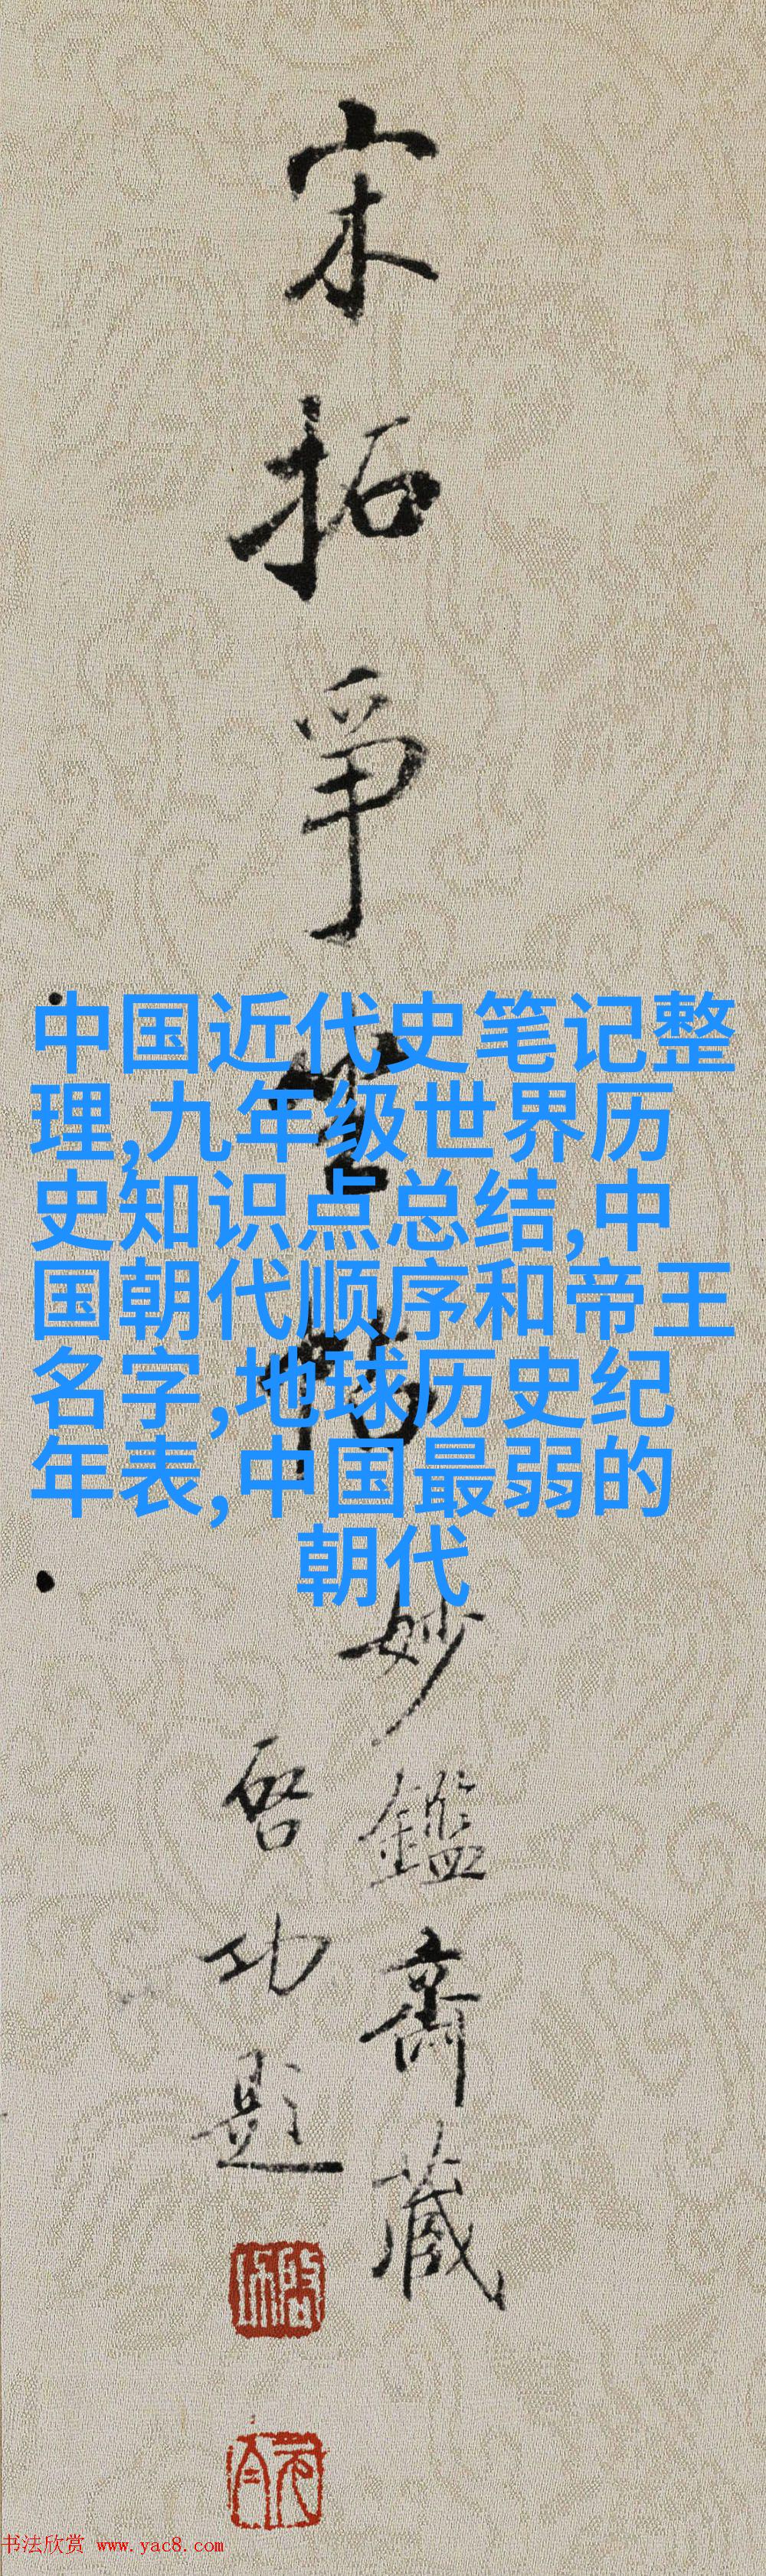 宋
拓
爭
中国近代史笔记整
理,九年级世界历
史知识点总结,中
国朝代顺序和帝王
名字,地球历史纪
年表,中国最弱的
朝代
妙鑑齋藏
启功題
书法欣赏 www.yac8.com